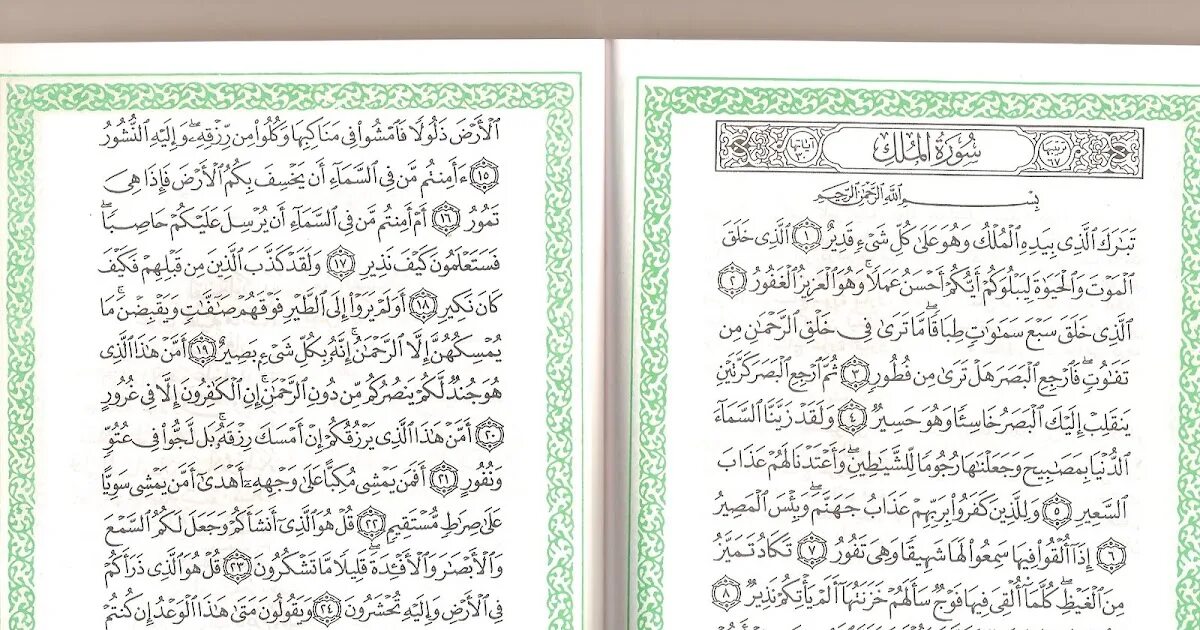 ترتيبها ٦٧ سُورَةُ المُلْك آياتها ٣٠
بِسْمِ اللَّهِ الرَّحْمَٰنِ الرَّحِيمِ
تَبَٰرَكَ الَّذِى بِيَدِهِ الْمُلْكُ وَهُوَ عَلَىٰ كُلِّ شَىْءٍ قَدِيرٌ ١ الَّذِى خَلَقَ
الْمَوْتَ وَالْحَيَوٰةَ لِيَبْلُوَكُمْ أَيُّكُمْ أَحْسَنُ عَمَلًا ۚ وَهُوَ الْعَزِيزُ الْغَفُورُ ٢
الَّذِى خَلَقَ سَبْعَ سَمَٰوَٰتٍ طِبَاقًا ۖ مَّا تَرَىٰ فِى خَلْقِ الرَّحْمَٰنِ مِن
تَفَٰوُتٍ ۖ فَارْجِعِ الْبَصَرَ هَلْ تَرَىٰ مِن فُطُورٍ ٣ ثُمَّ ارْجِعِ الْبَصَرَ كَرَّتَيْنِ
يَنقَلِبْ إِلَيْكَ الْبَصَرُ خَاسِئًا وَهُوَ حَسِيرٌ ٤ وَلَقَدْ زَيَّنَّا السَّمَآءَ
الدُّنْيَا بِمَصَٰبِيحَ وَجَعَلْنَٰهَا رُجُومًا لِّلشَّيَٰطِينِ ۖ وَأَعْتَدْنَا لَهُمْ عَذَابَ
السَّعِيرِ ٥ وَلِلَّذِينَ كَفَرُوا۟ بِرَبِّهِمْ عَذَابُ جَهَنَّمَ ۖ وَبِئْسَ الْمَصِيرُ
٦ إِذَآ أُلْقُوا۟ فِيهَا سَمِعُوا۟ لَهَا شَهِيقًا وَهِىَ تَفُورُ ٧ تَكَادُ تَمَيَّزُ
مِنَ الْغَيْظِ ۖ كُلَّمَآ أُلْقِىَ فِيهَا فَوْجٌ سَأَلَهُمْ خَزَنَتُهَآ أَلَمْ يَأْتِكُمْ نَذِيرٌ ٨
الْأَرْضَ ذَلُولًا فَامْشُوا۟ فِى مَنَاكِبِهَا وَكُلُوا۟ مِن رِّزْقِهِۦ ۖ وَإِلَيْهِ النُّشُورُ
١٥ ءَأَمِنتُم مَّن فِى السَّمَآءِ أَن يَخْسِفَ بِكُمُ الْأَرْضَ فَإِذَا هِىَ
تَمُورُ ١٦ أَمْ أَمِنتُم مَّن فِى السَّمَآءِ أَن يُرْسِلَ عَلَيْكُمْ حَاصِبًا ۖ
فَسَتَعْلَمُونَ كَيْفَ نَذِيرِ ١٧ وَلَقَدْ كَذَّبَ الَّذِينَ مِن قَبْلِهِمْ فَكَيْفَ
كَانَ نَكِيرِ ١٨ أَوَلَمْ يَرَوْا۟ إِلَى الطَّيْرِ فَوْقَهُمْ صَٰٓفَّٰتٍ وَيَقْبِضْنَ ۚ مَا
يُمْسِكُهُنَّ إِلَّا الرَّحْمَٰنُ ۚ إِنَّهُۥ بِكُلِّ شَىْءٍۭ بَصِيرٌ ١٩ أَمَّنْ هَٰذَا الَّذِى
هُوَ جُندٌ لَّكُمْ يَنصُرُكُم مِّن دُونِ الرَّحْمَٰنِ ۚ إِنِ الْكَٰفِرُونَ إِلَّا فِى غُرُورٍ
٢٠ أَمَّنْ هَٰذَا الَّذِى يَرْزُقُكُمْ إِنْ أَمْسَكَ رِزْقَهُۥ ۚ بَل لَّجُّوا۟ فِى عُتُوٍّ
وَنُفُورٍ ٢١ أَفَمَن يَمْشِى مُكِبًّا عَلَىٰ وَجْهِهِۦٓ أَهْدَىٰٓ أَمَّن يَمْشِى سَوِيًّا
عَلَىٰ صِرَٰطٍ مُّسْتَقِيمٍ ٢٢ قُلْ هُوَ الَّذِىٓ أَنشَأَكُمْ وَجَعَلَ لَكُمُ السَّمْعَ
وَالْأَبْصَٰرَ وَالْأَفْـِٔدَةَ ۖ قَلِيلًا مَّا تَشْكُرُونَ ٢٣ قُلْ هُوَ الَّذِى ذَرَأَكُمْ
فِى الْأَرْضِ وَإِلَيْهِ تُحْشَرُونَ ٢٤ وَيَقُولُونَ مَتَىٰ هَٰذَا الْوَعْدُ إِن كُنتُمْ